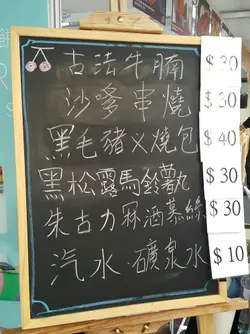 古法牛腩 $30
沙爹串燒 $30
黑毛豬义燒包 $40
黑松露馬鈴薯丸 $30
朱古力冧酒慕絲 $30
汽水 礦泉水 $10